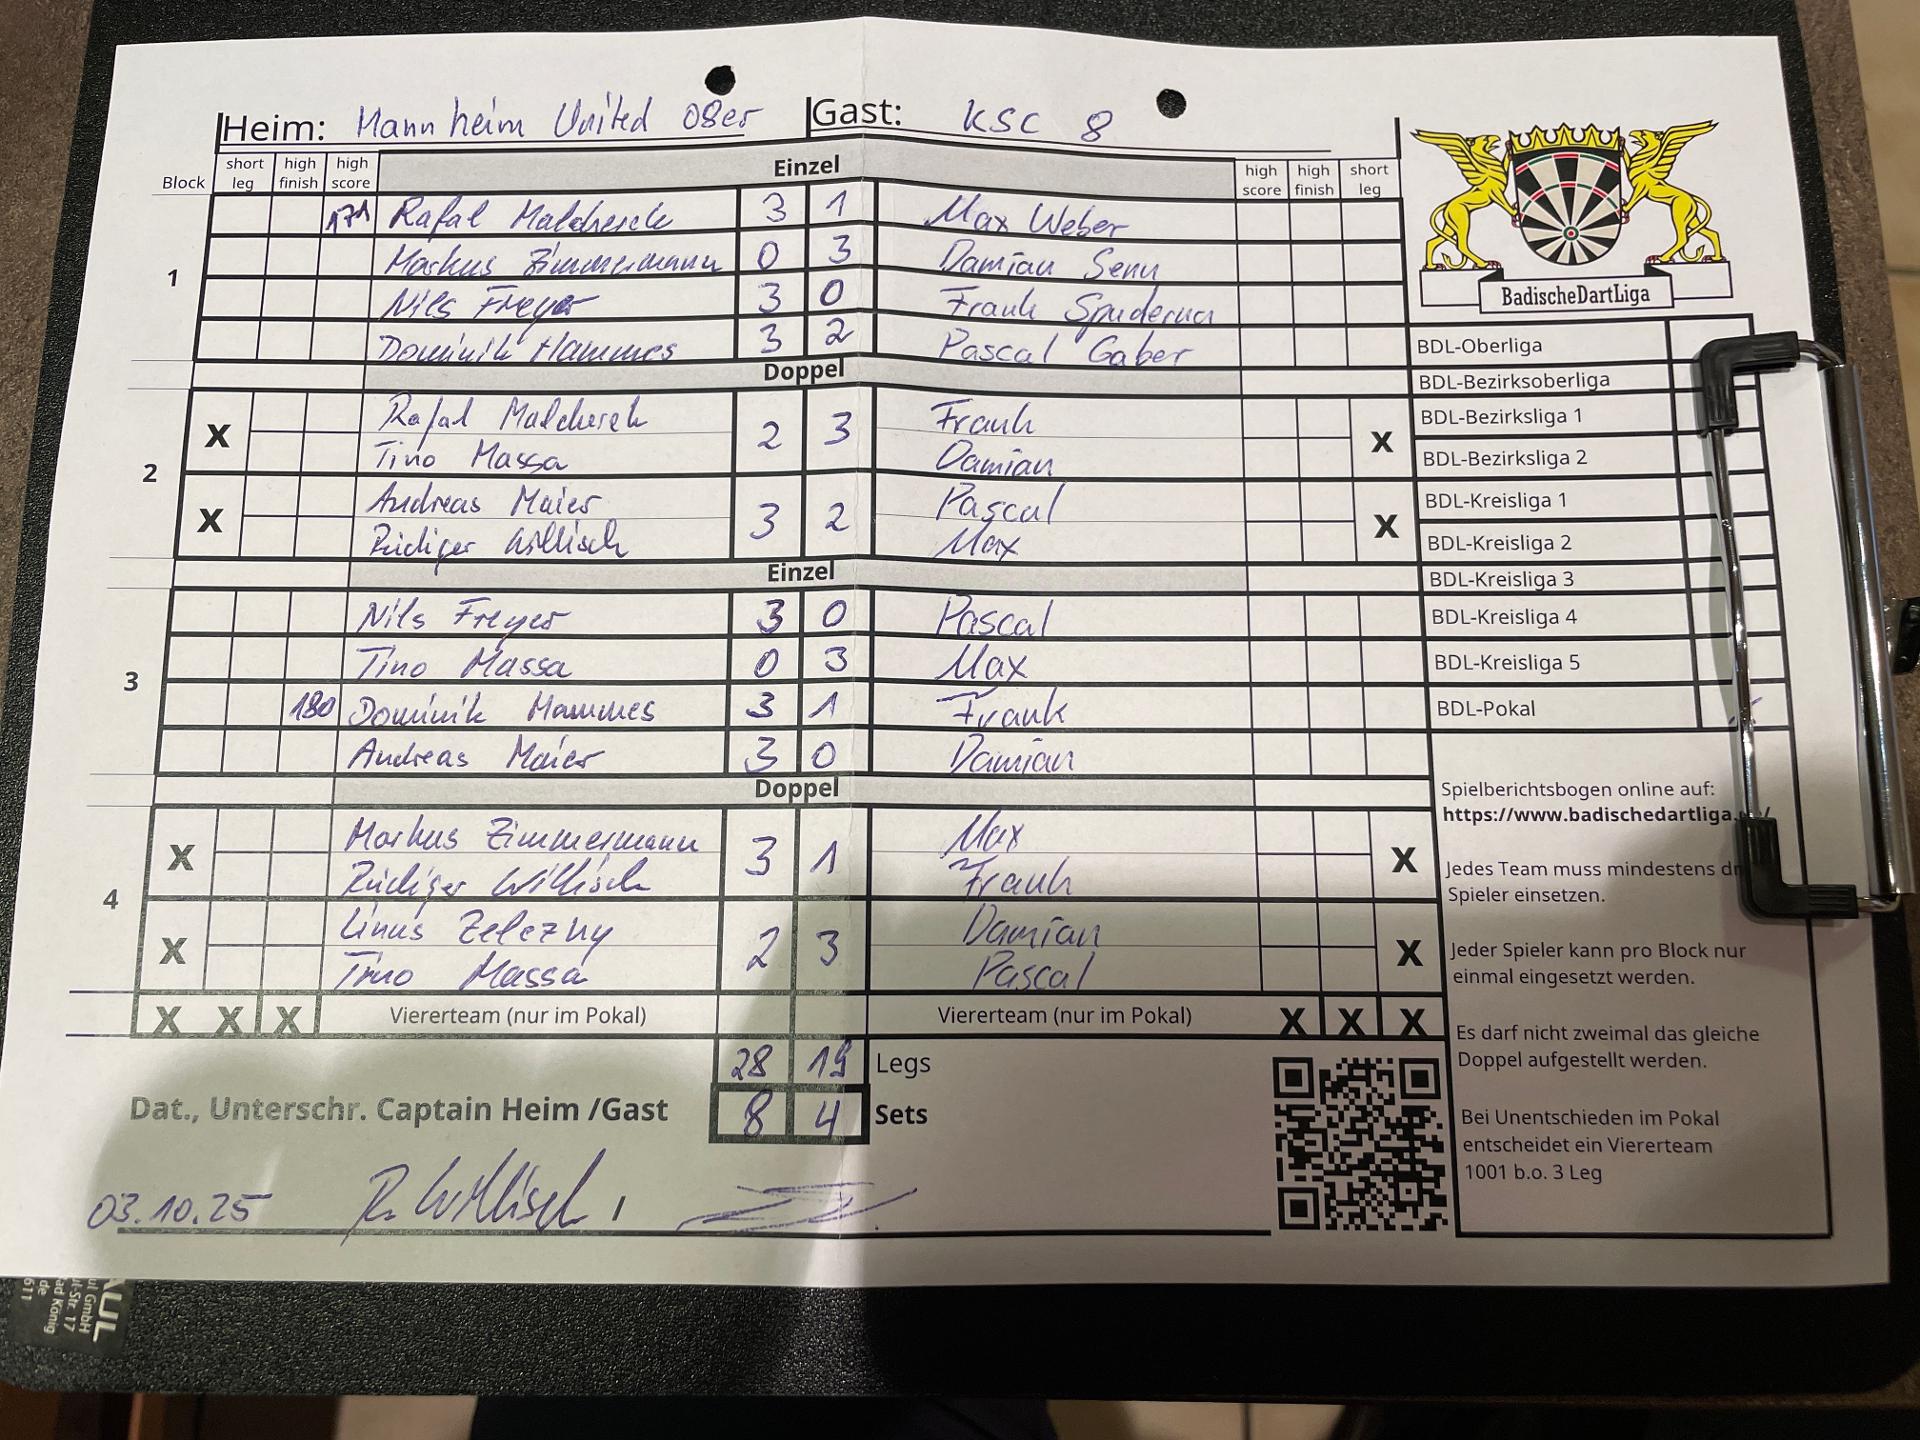 Heim: Mannheim United 08er Gast: KSC 8
Block short leg high finish high score Einzel high score high finish short leg
1
171 Rafal Malcherek 3 1 Max Weber
Markus Zimmermann 0 3 Damian Senn
Nils Freyer 3 0 Frank Spuderna
Dominik Hammes 3 2 Pascal Gaber
Doppel
2
X Rafal Malcherek 2 3 Frank X
Tino Massa Damian
X Andreas Maier 3 2 Pascal X
Rüdiger Willisch Max
Einzel
3
Nils Freyer 3 0 Pascal
Tino Massa 0 3 Max
180 Dominik Hammes 3 1 Frank
Andreas Maier 3 0 Damian
Doppel
4
X Markus Zimmermann 3 1 Max X
Rüdiger Willisch Frank
X Linus Zelezny 2 3 Damian X
Tino Massa Pascal
X X X Viererteam (nur im Pokal) Viererteam (nur im Pokal) X X X
28 19 Legs
8 4 Sets
Dat., Unterschr. Captain Heim /Gast
03.10.25 R. Willisch /
BadischeDartLiga
BDL-Oberliga
BDL-Bezirksoberliga
BDL-Bezirksliga 1
BDL-Bezirksliga 2
BDL-Kreisliga 1
BDL-Kreisliga 2
BDL-Kreisliga 3
BDL-Kreisliga 4
BDL-Kreisliga 5
BDL-Pokal
Spielberichtsbogen online auf:
https://www.badischedartliga.
Jedes Team muss mindestens
Spieler einsetzen.
Jeder Spieler kann pro Block nur
einmal eingesetzt werden.
Es darf nicht zweimal das gleiche
Doppel aufgestellt werden.
Bei Unentschieden im Pokal
entscheidet ein Viererteam
1001 b.o. 3 Leg